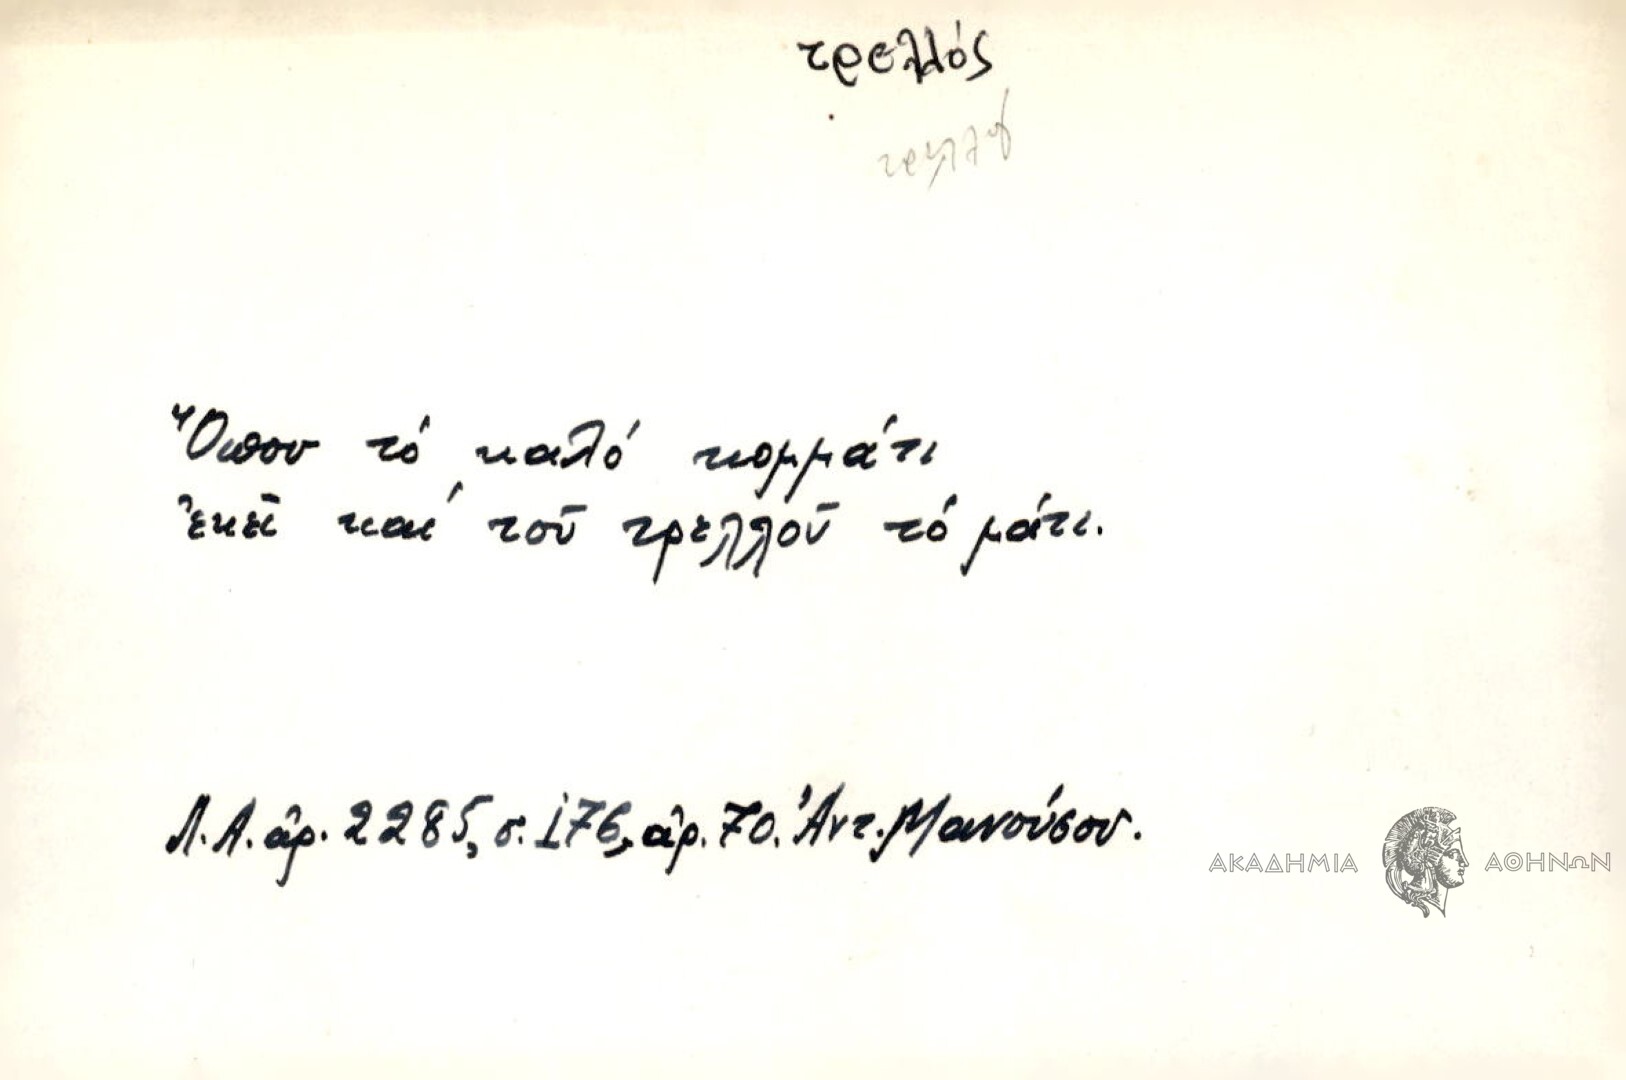 τρελλός
τρελλός
Ὅπου τό καλό κομμάτι
ἐκεῖ καί τοῦ τρελλοῦ τό μάτι.
Λ.Α. ἀρ. 2285, σ. 176, ἀρ. 70. Ἀντ. Μανούσου.
ΑΚΑΔΗΜΙΑ ΑΘΗΝΩΝ